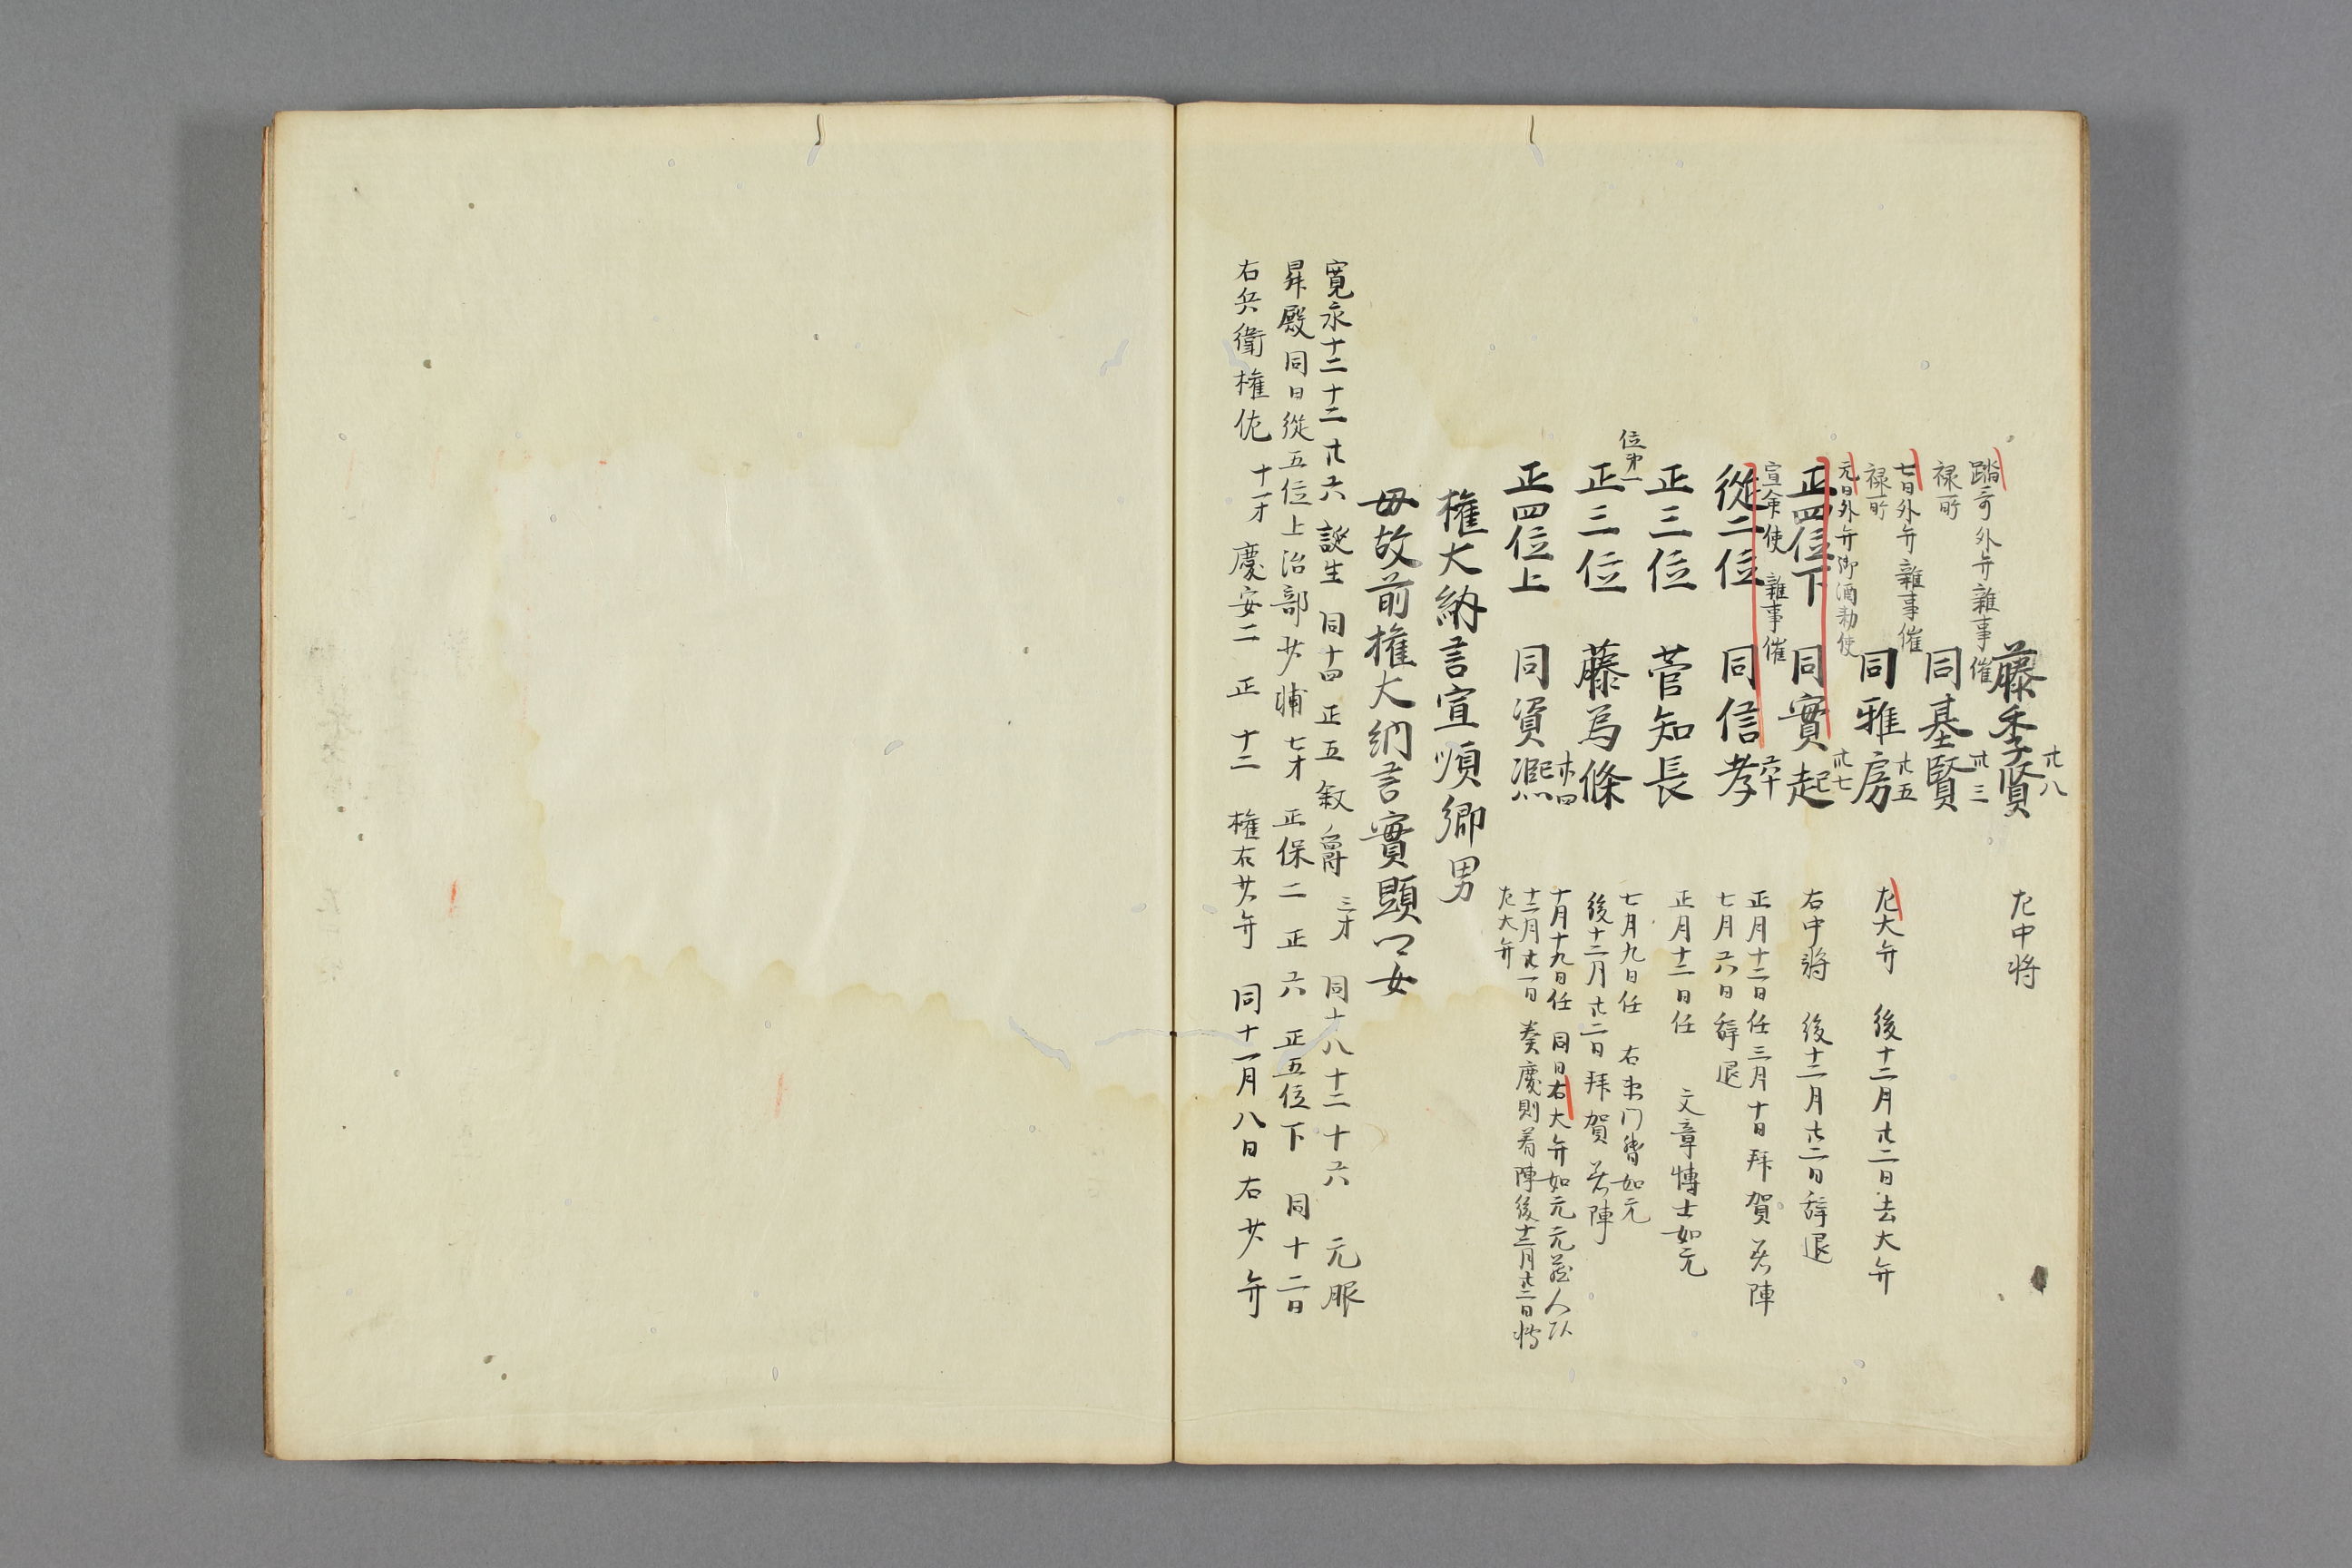 藤季賢 廿八 左中将
踏哥外弁雜事催
禄所 同基賢 卅三
七日外弁雜事催
禄所 同雅房 廿五 左大弁 後十二月廿二日去大弁
元日外弁御酒勅使
正四位下 同實起 廿七 右中将 後十二月廿二日辞退
宣命使 雜事催
從二位 同信孝 六十 正月十二日任三月十日拜賀着陣
七月六日辞退
正三位 菅知長 正月十二日任 文章博士如元
位第一
正三位 藤為條 七月九日任 右衛門督如元
後十二月廿二日拜賀着陣
正四位上 同資凞 十月十九日任 同日右大弁如元元蔵人頭
十二月廿一日奏慶則着陣後十二月廿二日轉
左大弁
權大納言宣順卿男
母故前權大納言實顕卿女
寛永十二十二廿六誕生 同十四正五敘爵 三才 同十八十二十六元服
昇殿同日從五位上治部少輔 七才 正保二正六正五位下 同十二日
右兵衛權佐 十一才 慶安二正十二權右少弁 同十一月八日右少弁